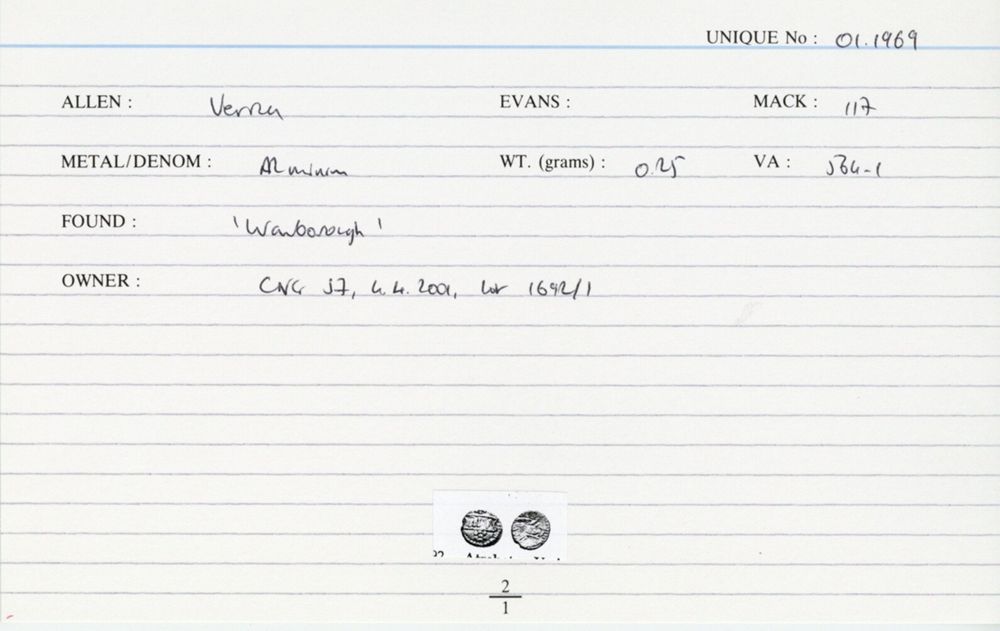 UNIQUE No : 01.1969
ALLEN : Verica EVANS : MACK : 117
METAL/DENOM : AR minim WT. (grams) : 0.25 VA : 564-1
FOUND : 'Wanborough'
OWNER : CNG 57, 4.4.2001, lot 1692/1
2
1